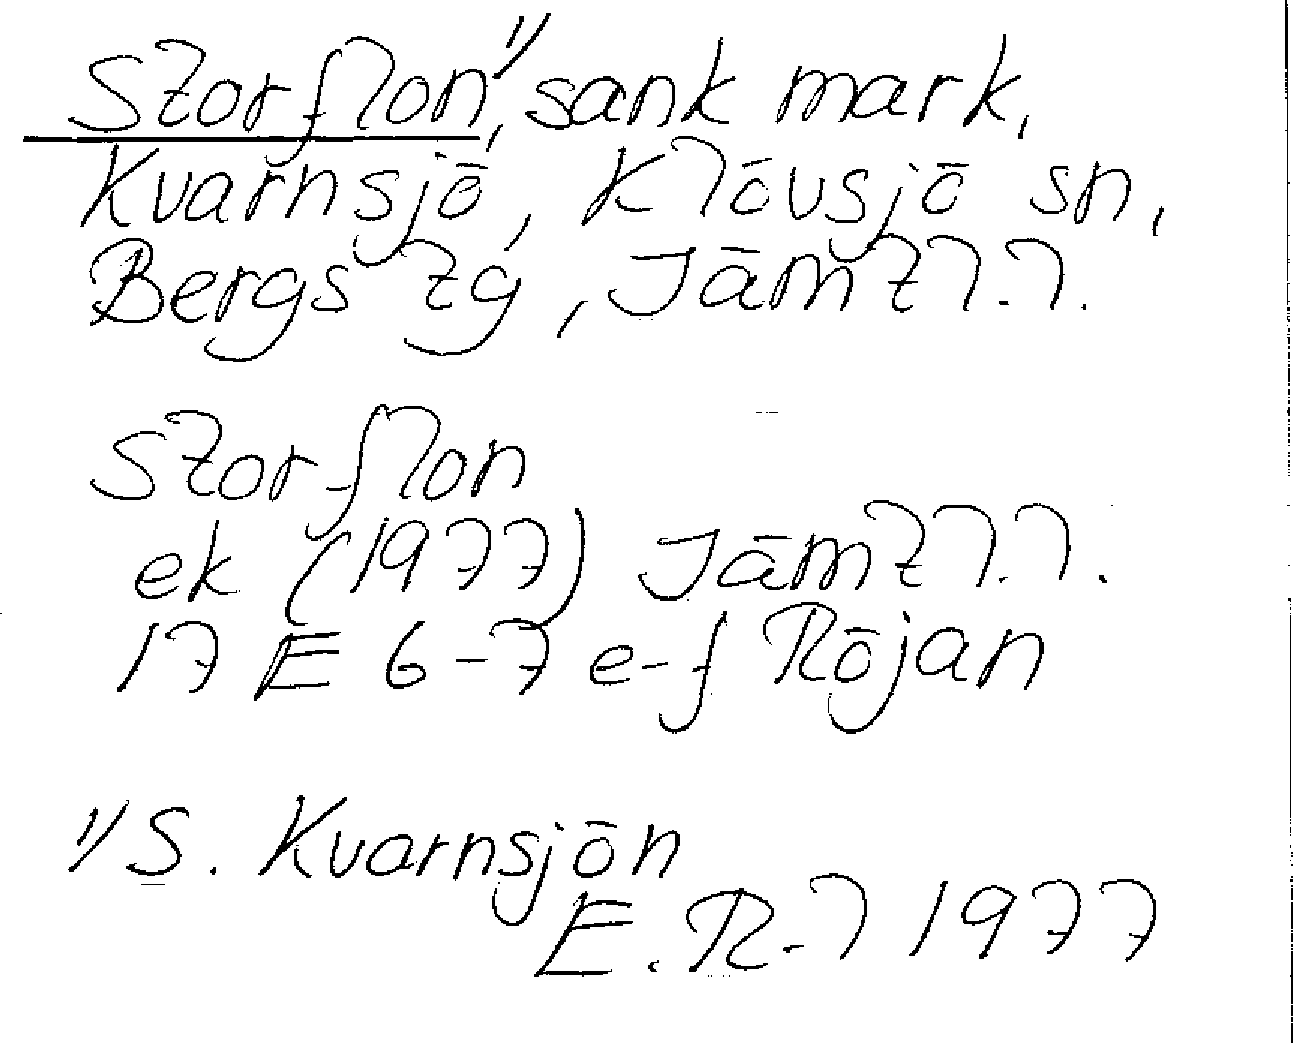 Storflon,¹⁾ sank mark,
Kvarnsjö, Klövsjö sn,
Bergs tg, Jämtl.l.
Storflon
ek (1977) Jämtl.l.
17 E 6-7 e-f Röjan
¹⁾ S. Kvarnsjön
E. R-l 1977